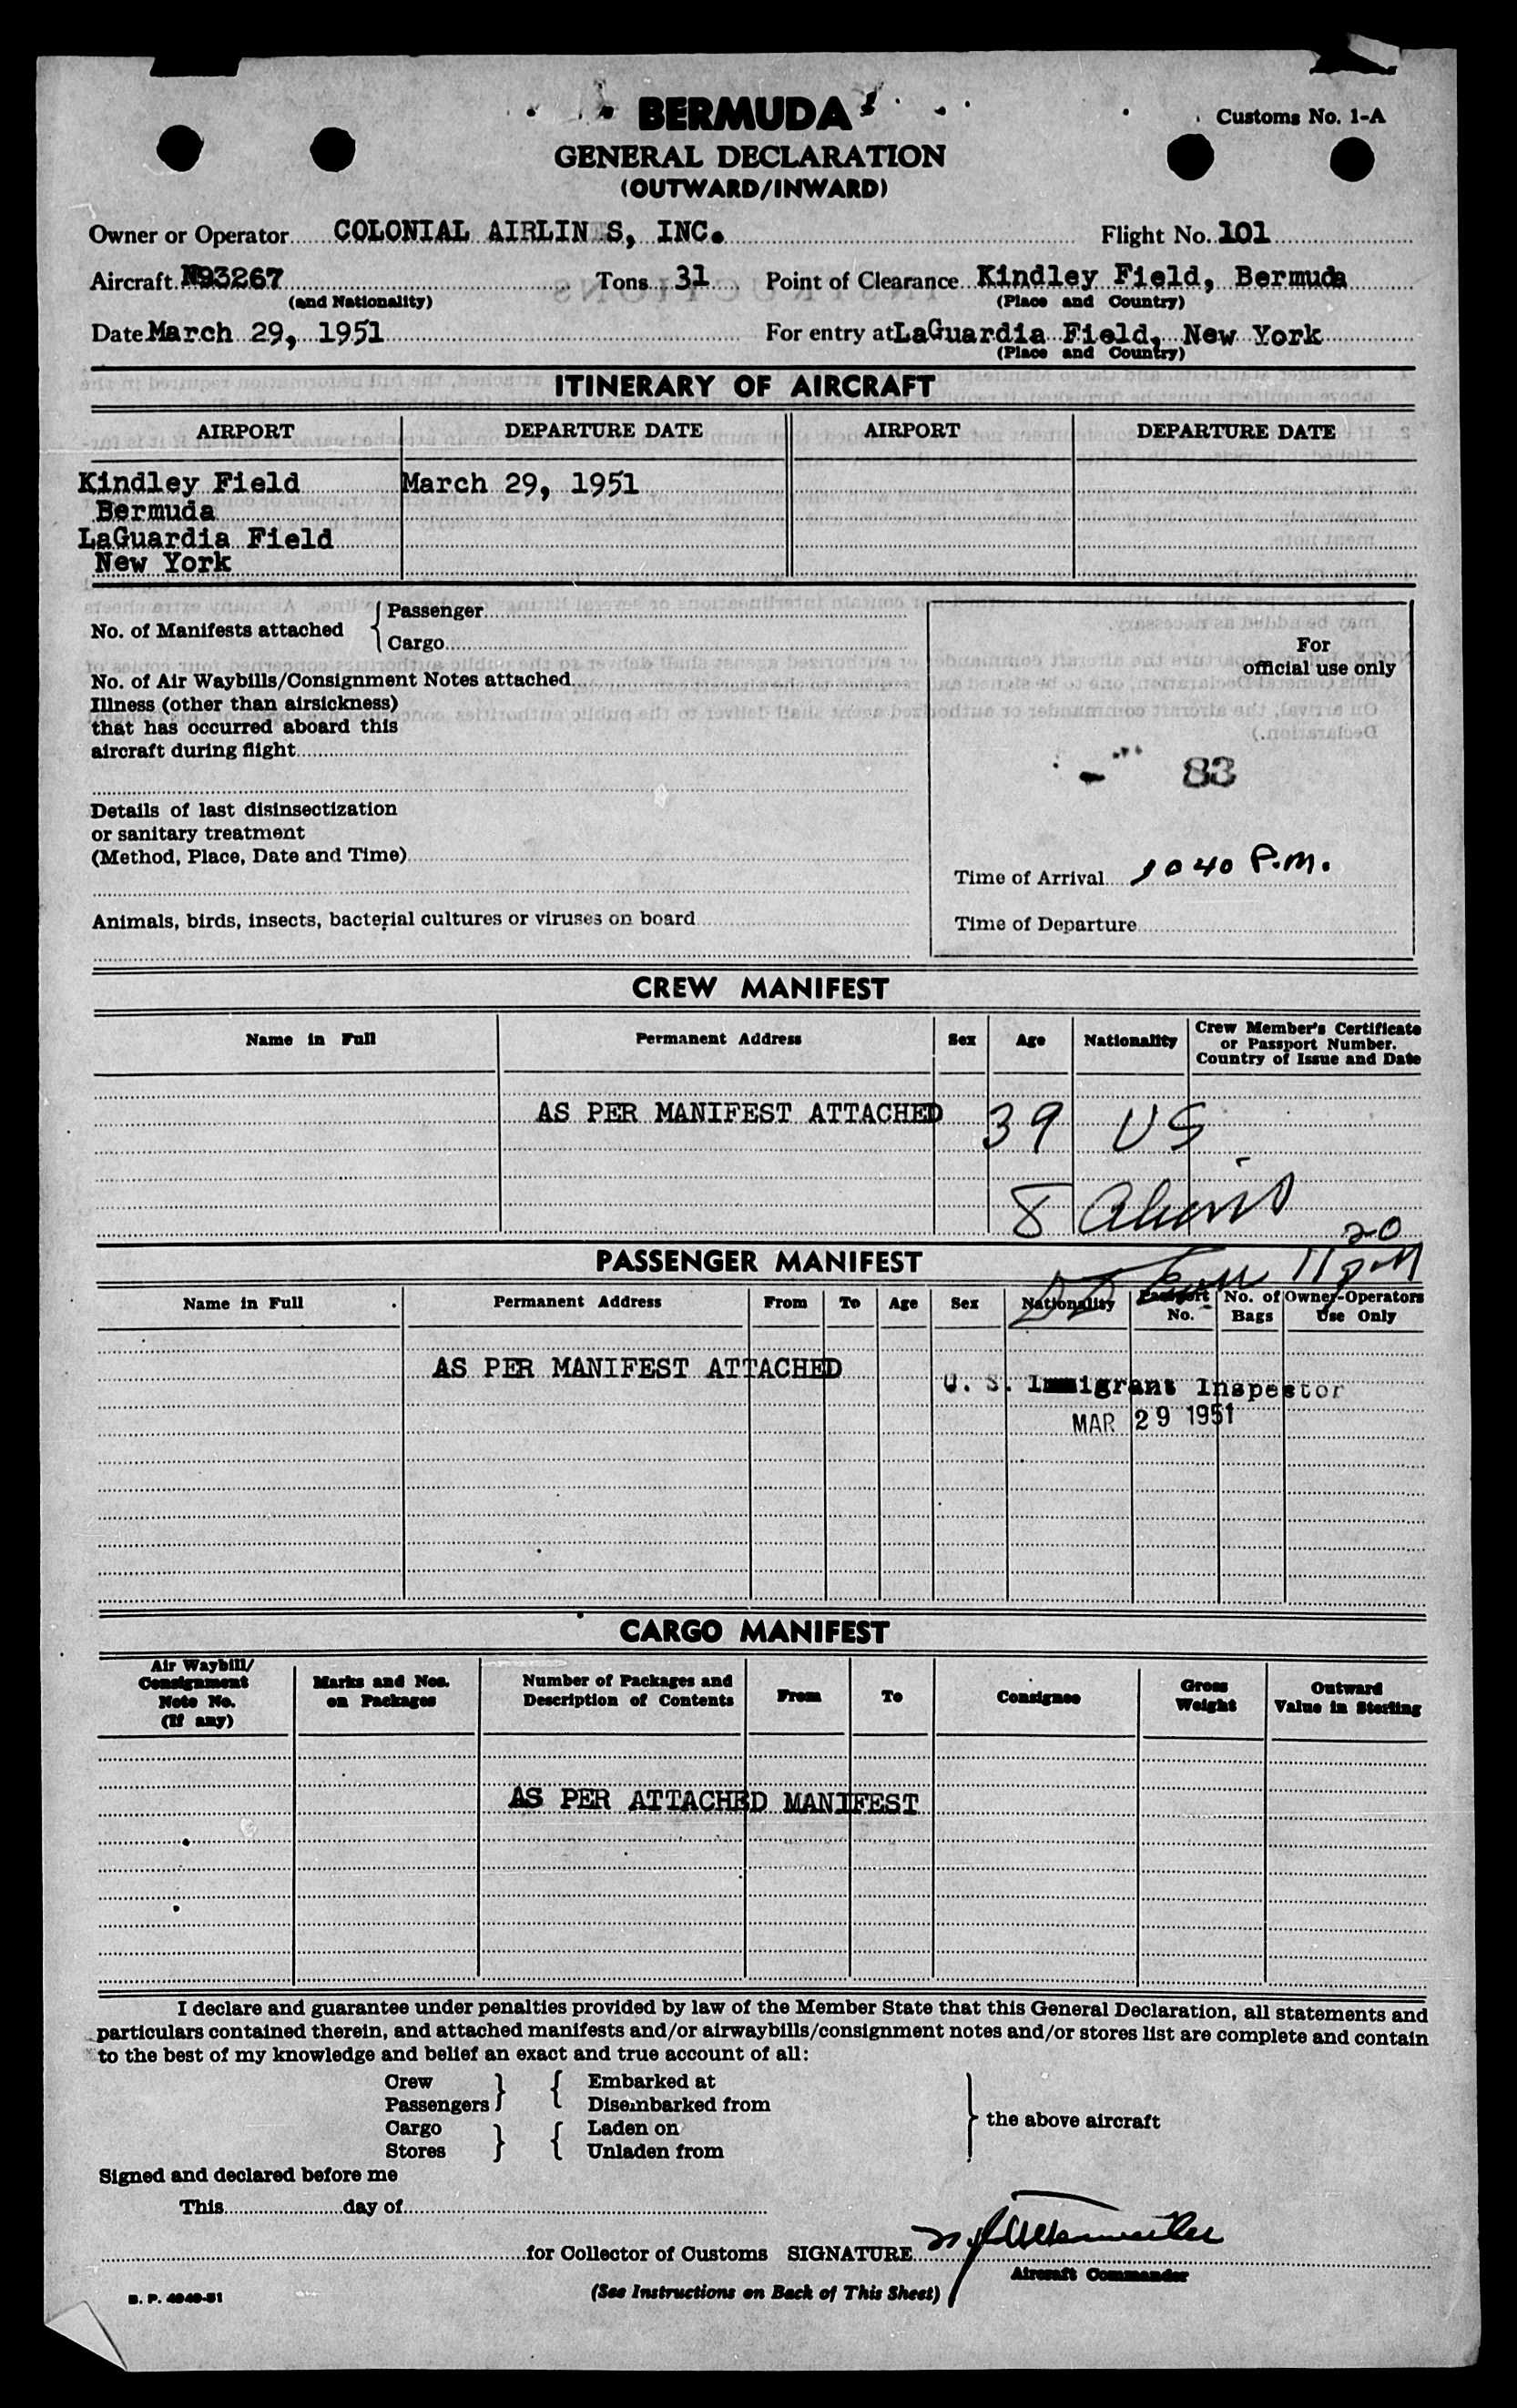 BERMUDA
Customs No. 1-A
GENERAL DECLARATION
(OUTWARD/INWARD)
Owner or Operator COLONIAL AIRLIN S, INC. Flight No. 101
Aircraft N93267 Tons 31 Point of Clearance Kindley Field, Bermuda
(and Nationality) (Place and Country)
Date March 29, 1951 For entry at LaGuardia Field, New York
(Place and Country)
ITINERARY OF AIRCRAFT
AIRPORT DEPARTURE DATE AIRPORT DEPARTURE DATE
Kindley Field March 29, 1951
Bermuda
LaGuardia Field
New York
No. of Manifests attached { Passenger
Cargo
No. of Air Waybills/Consignment Notes attached
Illness (other than airsickness)
that has occurred aboard this
aircraft during flight
Details of last disinsectization
or sanitary treatment
(Method, Place, Date and Time)
Animals, birds, insects, bacterial cultures or viruses on board
For
official use only
83
Time of Arrival 1040 P.M.
Time of Departure
CREW MANIFEST
Name in Full Permanent Address Sex Age Nationality Crew Member's Certificate
or Passport Number.
Country of Issue and Date
AS PER MANIFEST ATTACHED 39 US
8 Aliens
20
PASSENGER MANIFEST 11 pm
Name in Full Permanent Address From To Age Sex Nationality Passport No. No. of Bags Owner-Operators Use Only
AS PER MANIFEST ATTACHED
U. S. Immigrant Inspector
MAR 29 1951
CARGO MANIFEST
Air Waybill/
Consignment
Note No.
(If any)
Marks and Nos.
on Packages
Number of Packages and
Description of Contents
From To Consignee
Gross
Weight
Outward
Value in Sterling
AS PER ATTACHED MANIFEST
I declare and guarantee under penalties provided by law of the Member State that this General Declaration, all statements and
particulars contained therein, and attached manifests and/or airwaybills/consignment notes and/or stores list are complete and contain
to the best of my knowledge and belief an exact and true account of all:
Crew } { Embarked at
Passengers Disembarked from
Cargo } { Laden on } the above aircraft
Stores Unladen from
Signed and declared before me
This day of
for Collector of Customs SIGNATURE
Aircraft Commander
(See Instructions on Back of This Sheet)
B. P. 4949-51